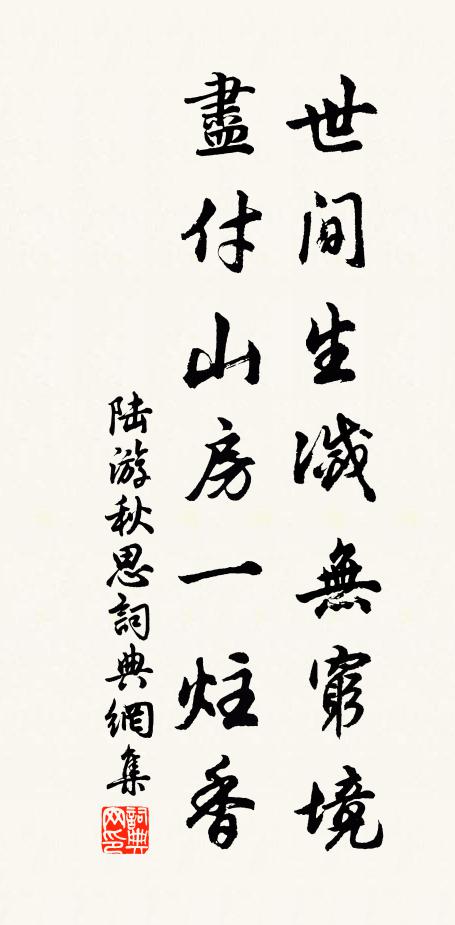 世間生滅無窮境
盡付山房一炷香
陆游秋思詞典網集
詞典网印